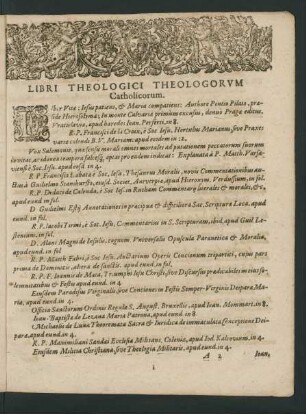 LIBRI THEOLOGICI THEOLOGORVM
Catholicorum.
Liber Vitæ: Iesus patiens, & Maria compatiens: Authore Pontio Pilato, præ-
side Hierosolymæ; In monte Calvariæ primùm excusus, denuò Pragæ editus,
Vratislaviæ, apud hæredes Ioan. Perferti, in 8.
R. P. Francisci de la Croix, è Soc. Iesu, Hortulus Marianus, sive Praxes
variæ colendi B. V. Mariam: apud eundem in 12.
Vox Salomonis, quâ sensus morali omnes mortales ad putationem peccatorum suorum
invitat, ac
viensi è Soc. Iesu. apud eosd. in 4.
R. P. Francisci Labata è Soc. Iesu, Thesaurus Moralis, novis Commentationibus au-
apud Hieronym. Verdussium, in fol.
R. P. Didaci de Celada, è Soc. Iesu, in
apud eund. in fol.
D. Guilielmi Estij Annotationes in præcipua & difficiliora Sac. Scripturæ Loca. apud
eund. in fol.
R. P. Iacobi Tirini è Soc. Iesu, Commentarius in S. Scripturam, ibid, apud Guil Les-
teenium, in fol.
D. Alani Magni de Insulis, cognom. Universalis Opuscula Parænetica & Moralia,
apud eund. in fol.
R. P. Matth. Fabri, è Soc. Iesu, Auctarium Operis Concionum tripartiti, cujus pars
prima de Dominicis, altera de sanctis. apud eund. in fol.
R. P. F. Ioannis de Mata, Triumphi Iesu Christi, sive Discursus prædicabiles in eius so-
lennitatibus & Festis apud eund. in 4.
Eiusdem Paradisus Virginalis sive Conciones in Festis Semper-Virginis Deiparæ Ma-
riæ, apud eund. in 4.
Officia Sanctorum Ordinis Regulæ S. August. Bruxellis, apud Ioan. Mommart. in 8.
Ioan-Baptistæ de Lezana Maria Patrona, apud eund. in 8.
c Michaelis de Luna Theoremata Sacra & Iuridica de immaculata cōceptione Dei-
paræ, apud eund. in 4.
R. P. Maximiliani Sandæi Ecclesia Militans, Coloniæ, apud Iod. Kalcovium, in 4.
Eiusdem Militia Christiana, sive Theologia Militaris, apud eund. in 4.
A 2
Ioan,